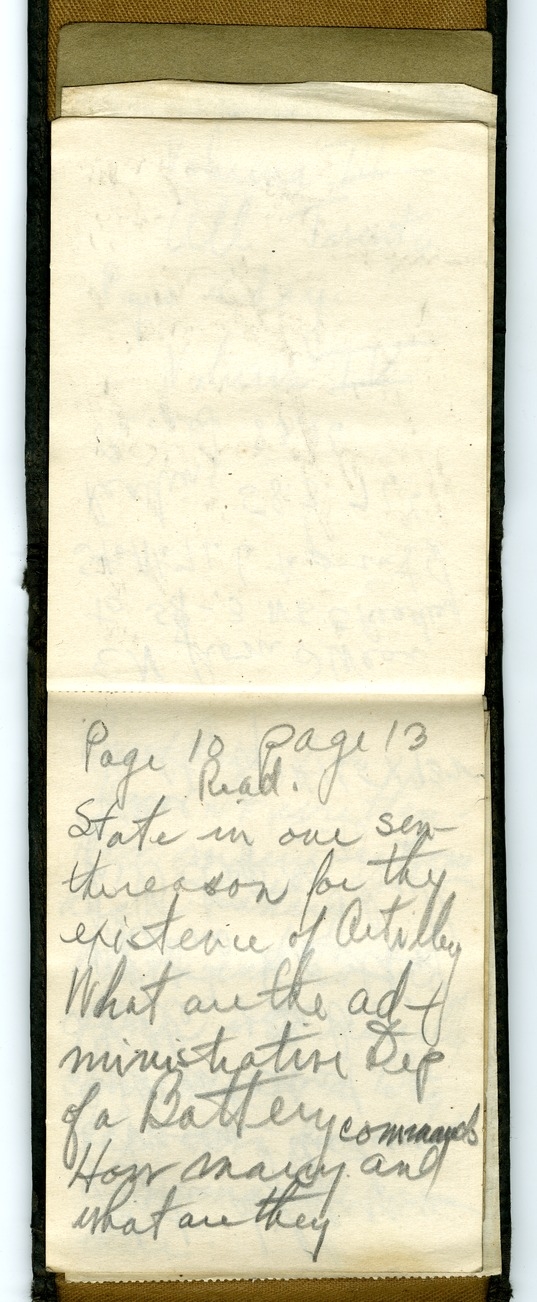 Page 10 page 13
Read.
State in one sen-
the reason for thy
existence of Artilley
What are the ad-
ministrative Dep
of a Battery commands
How many and
what are they